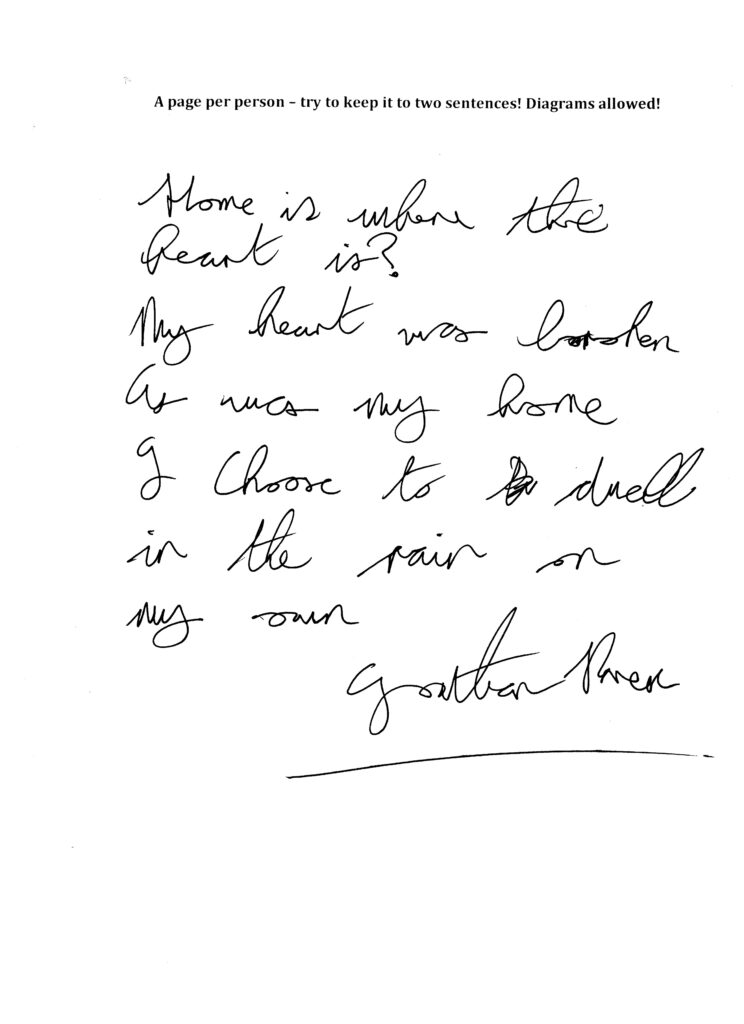 A page per person – try to keep it to two sentences! Diagrams allowed!
Home is where the
heart is?
My heart was broken
As was my home
I Choose to dwell
in the rain on
my own
Jonathan